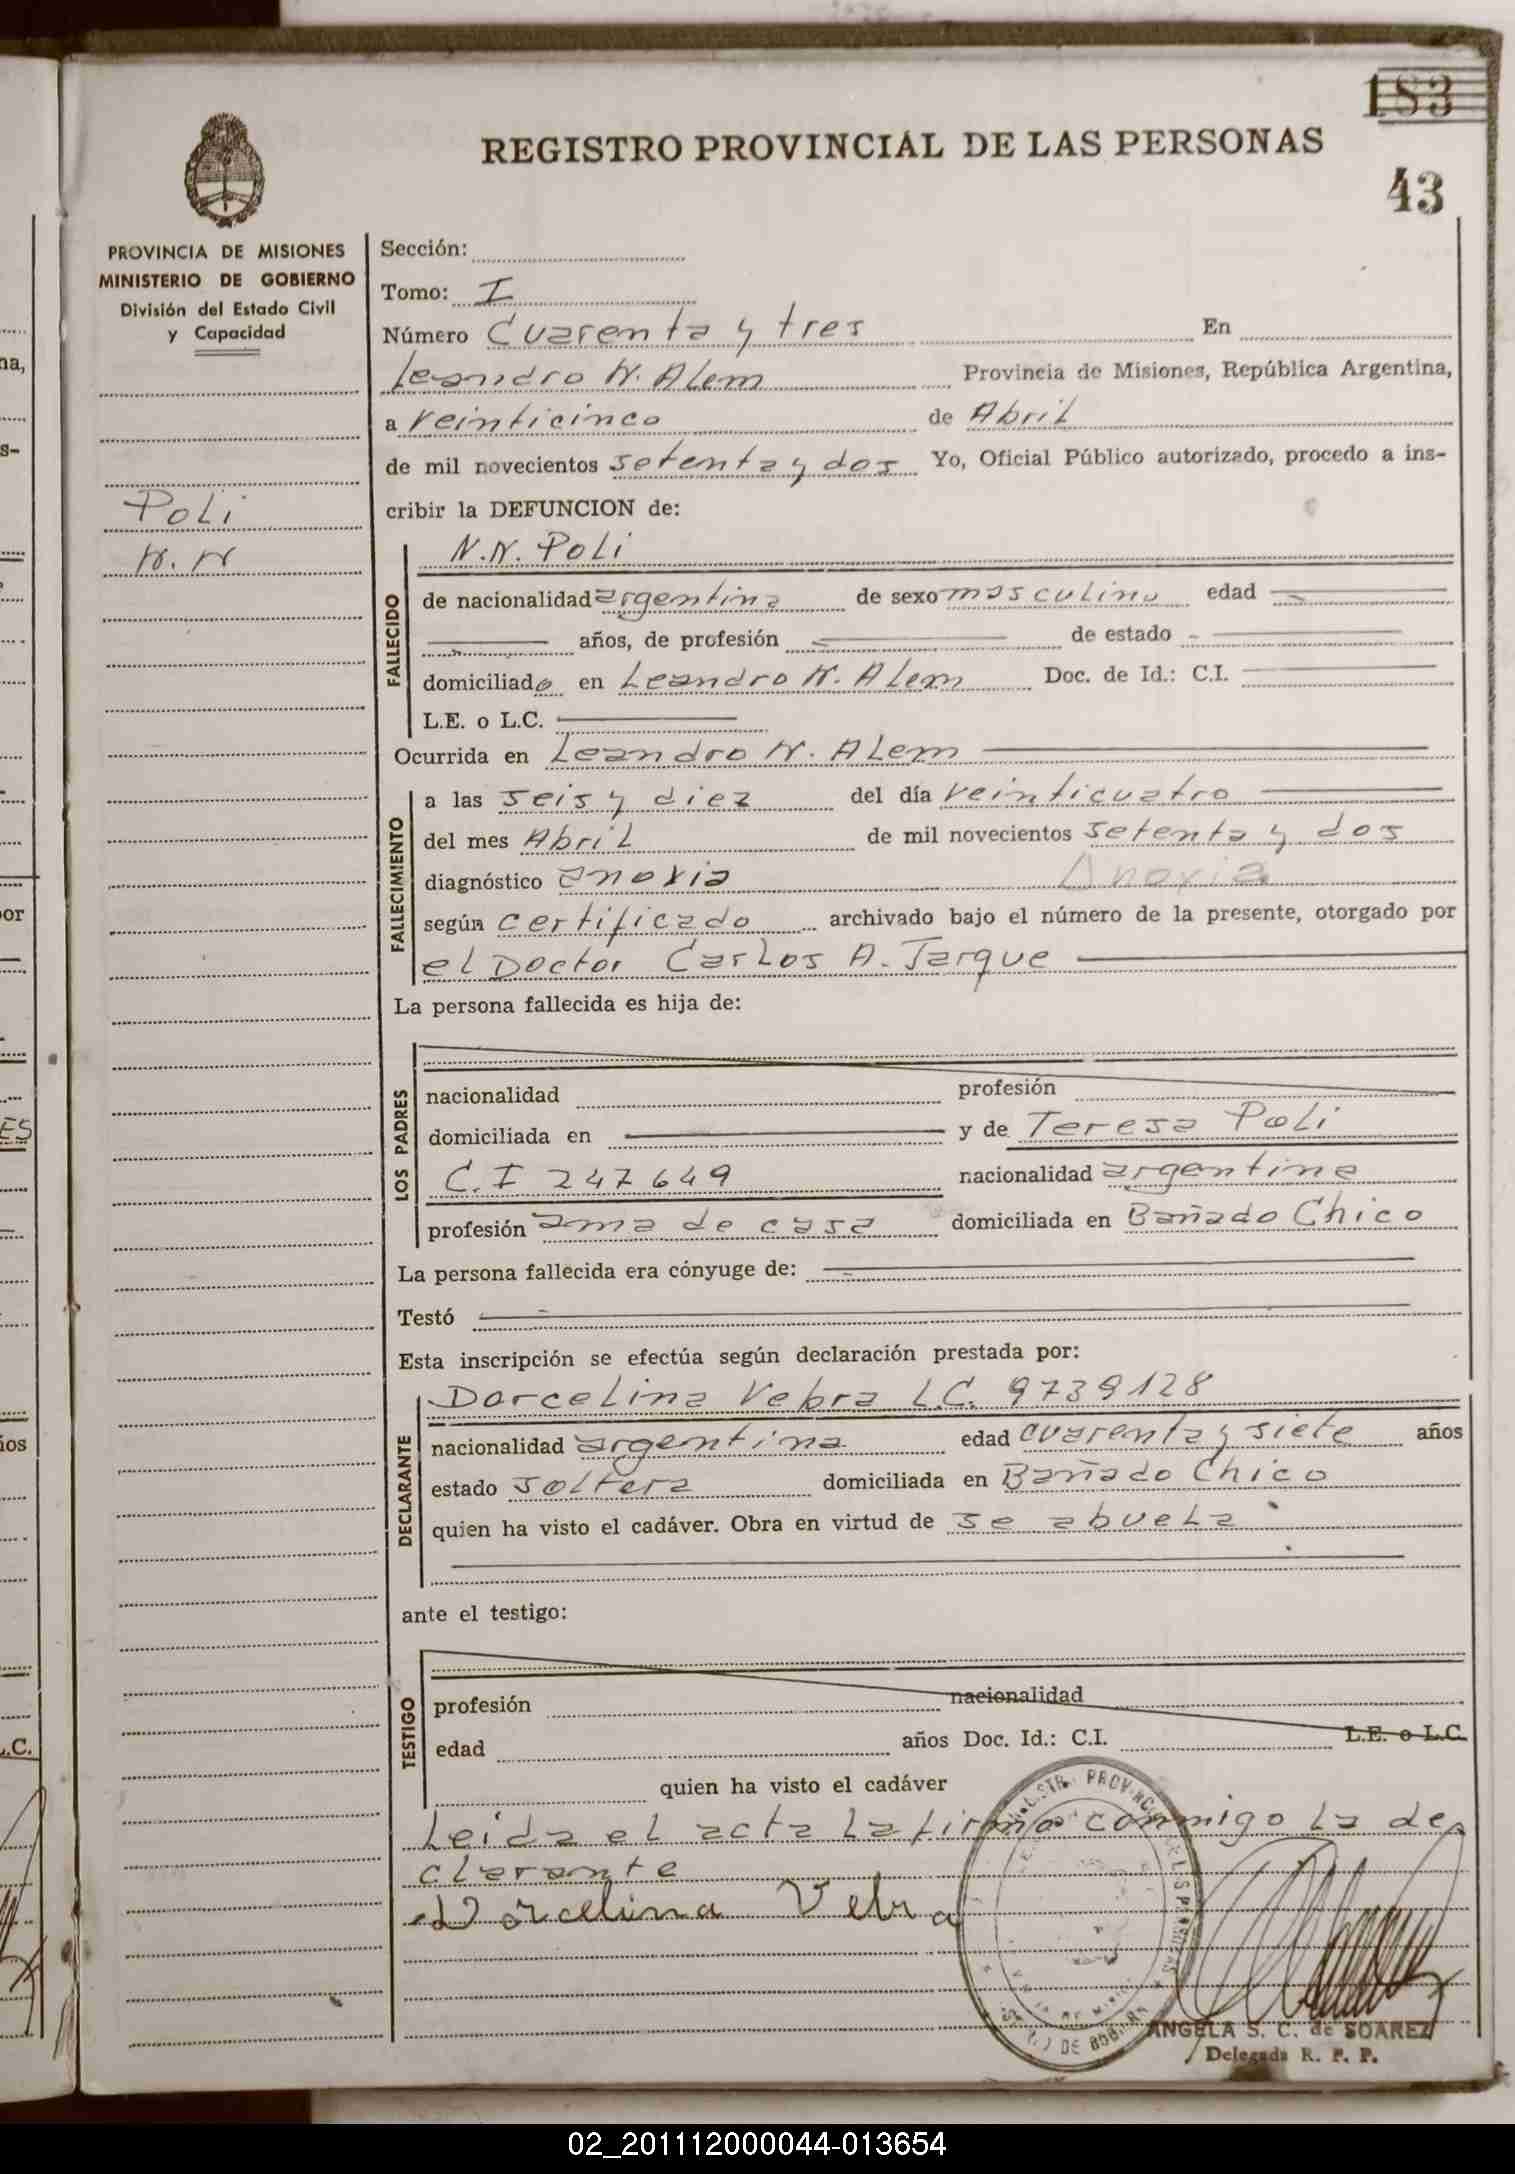 183
REGISTRO PROVINCIAL DE LAS PERSONAS
43
PROVINCIA DE MISIONES
MINISTERIO DE GOBIERNO
División del Estado Civil
y Capacidad
Poli
N. N
Sección:
Tomo: I
Número Cuarenta y tres En
Leandro N. Alem Provincia de Misiones, República Argentina,
a veinticinco de Abril
de mil novecientos setenta y dos Yo, Oficial Público autorizado, procedo a ins-
cribir la DEFUNCION de:
FALLECIDO
N.N. Poli
de nacionalidad argentina de sexo masculino edad
años, de profesión de estado
domiciliado en Leandro N. Alem Doc. de Id.: C.I.
L.E. o L.C.
Ocurrida en Leandro N. Alem
FALLECIMIENTO
a las seis y diez del día veinticuatro
del mes Abril de mil novecientos setenta y dos
diagnóstico anoxia Anoxia
según certificado archivado bajo el número de la presente, otorgado por
el Doctor Carlos A. Jarque
La persona fallecida es hija de:
LOS PADRES
nacionalidad profesión
domiciliada en y de Teresa Poli
C.I 247649 nacionalidad argentina
profesión ama de casa domiciliada en Bañado Chico
La persona fallecida era cónyuge de:
Testó
Esta inscripción se efectúa según declaración prestada por:
DECLARANTE
Dorcelina Vebra L.C. 9739128
nacionalidad argentina edad cuarenta y siete años
estado soltera domiciliada en Bañado Chico
quien ha visto el cadáver. Obra en virtud de se abuela
ante el testigo:
TESTIGO
profesión nacionalidad
edad años Doc. Id.: C.I. L.E. o L.C.
quien ha visto el cadáver
Leida el acta la firma conmigo la de
clarante
Dorcelina Vebra
ANGELA S. C. de SOAREZ
Delegada R. P. P.
02_201112000044-013654